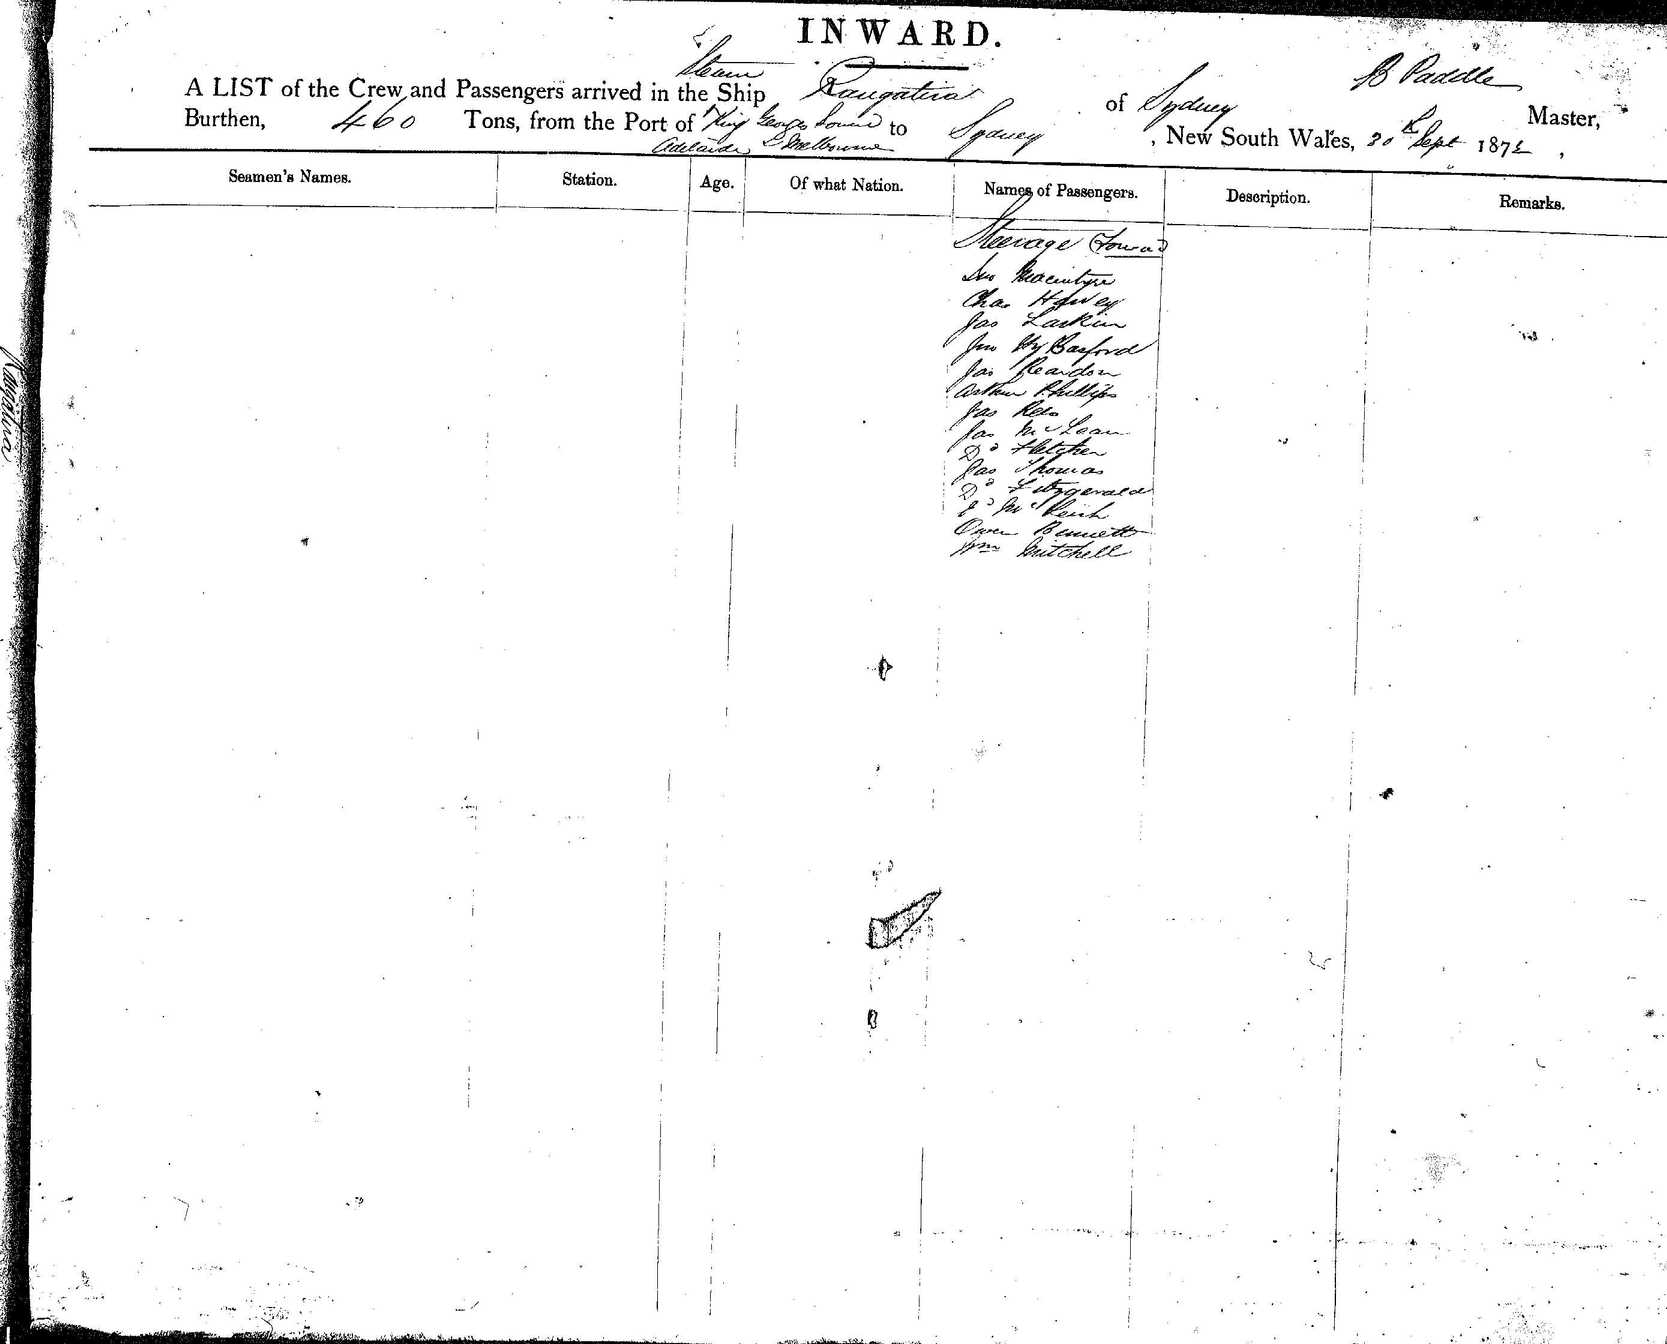 INWARD.
Steam
A LIST of the Crew and Passengers arrived in the Ship Rangatira of Sydney B Paddle Master,
Burthen, 460 Tons, from the Port of King Georges Sound to Sydney, New South Wales, 30th Sept 1872,
Adelaide & Melbourne
Seamen's Names. Station. Age. Of what Nation. Names of Passengers. Description. Remarks.
Steerage
Macintyre
Chas Harvey
Jas Larkin
Jno Hy Basford
Jas Reardon
Arthur Phillips
Jas Rees
Jas McLean
Do Fletcher
Jas Thomas
Do Fitzgerald
Owen Bennett
Wm Mitchell
Rangatira